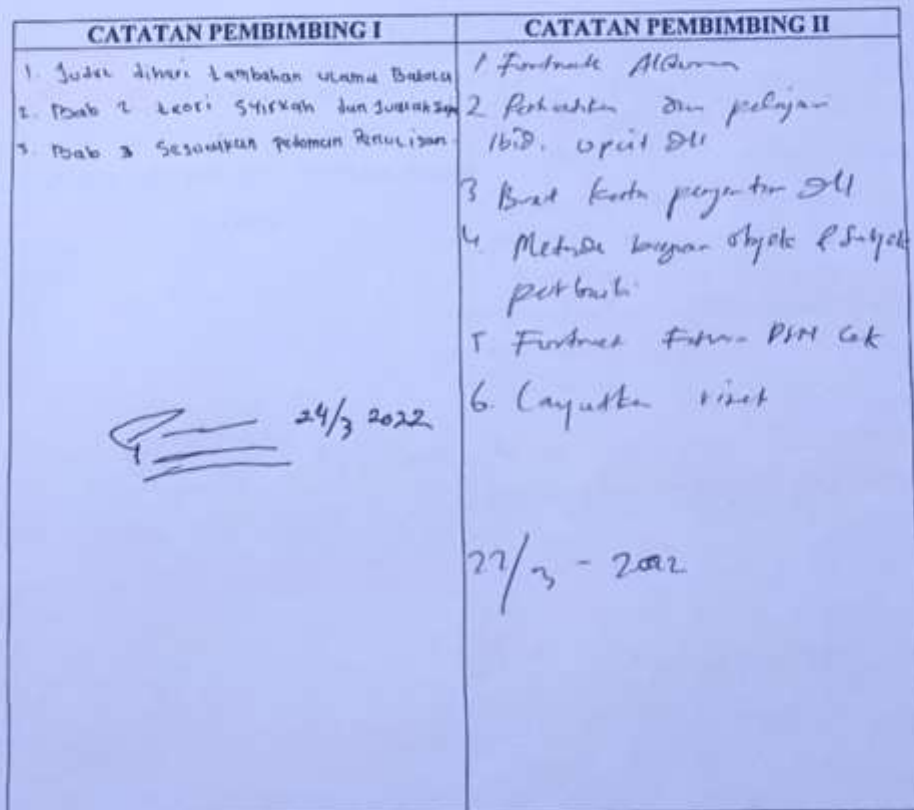 CATATAN PEMBIMBING I
1. Judul diberi tambahan ulama Batola
2. Bab 2 teori Syirkah dan
3. Bab 3 Sesuaikan pedoman Penulisan
24/3 2022
CATATAN PEMBIMBING II
1 Footnote AlQuran
2 Perhatikan dan pelajari
Ibid. opcit Dll
3 Buat kata pengantar Dll
4. Metode bagian objek & Subjek
perbaiki
5 Footnote Fatwa DSN Cek
6. Lanjutkan riset
22/3 - 2022